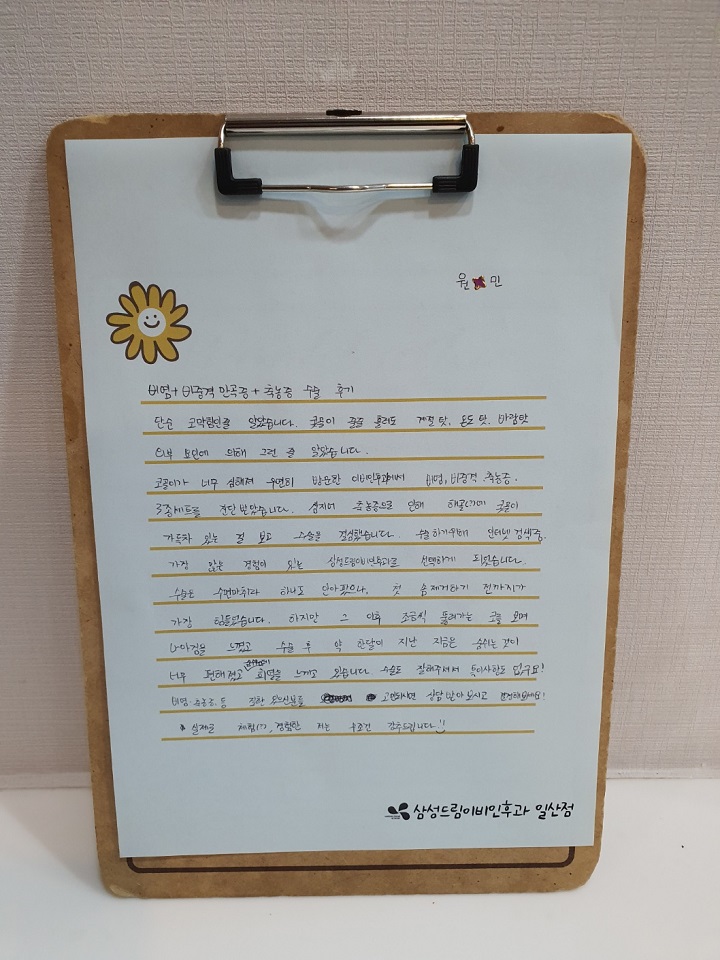 원 민
비염+비중격 만곡증+축농증 수술 후기
단순 코막힘인줄 알았습니다. 콧물이 줄줄 흘러도 계절 탓, 온도 탓, 바람탓
외부 요인에 의해 그런 줄 알았습니다.
코골이가 너무 심해져 우연히 방문한 이비인후과에서 비염, 비중격, 축농증.
3종세트를 진단 받았습니다. 심지어 축농증으로 인해 해골 에 콧물이
가득차 있는 걸 보고 수술을 결심했습니다. 수술하기위해 인터넷 검색중
가장 많은 경험이 있는 삼성드림이비인후과를 선택하게 되었습니다.
수술은 수면마취라 하나도 안아팠으나, 첫 솜제거하기 전까지가
가장 힘들었습니다. 하지만 그 이후 조금씩 뚫려가는 코를 보며
나아짐을 느꼈고 수술 후 약 한달이 지난 지금은 숨쉬는 것이
너무 편해졌고 희열을 느끼고 있습니다. 수술도 잘해주셔서 특이사항도 없구요!
비염 축농증 등 고민되시면 상담 받아 보시고 결정해보세요!
실제로 체험하고, 경험한 저는 무조건 강추드립니다!!
삼성드림이비인후과 일산점